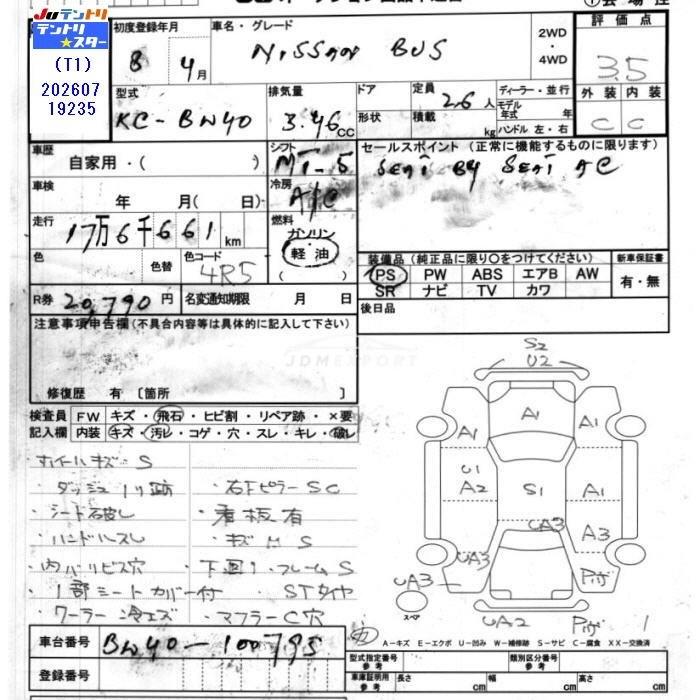 JUテントリ
テントリ★スター
(T1)
202607
19235
初度登録年月
8 4月
車名・グレード
NISSAN BUS
2WD
・
4WD
評価点
3.5
外装 内装
C C
型式
KC-BW40
排気量
3.46 CC
ドア
形状
定員
26人
積載
kg
ディーラー・並行
モデル年式 年
ハンドル 左・右
車歴
自家用・( )
シフト
MT-5
セールスポイント (正常に機能するものに限ります)
車検
年 月( 日)
冷房
A/C
走行
17万6千661km
燃料
ガソリン
軽油
( )
色
色替
色コード
4R5
装備品(純正品に限り○をつけてください)
新車保証書
PS PW ABS エアB AW
SR ナビ TV カワ
有・無
R券 20,790円
名変通知期限 月 日
後日品
注意事項申告欄(不具合内容等は具体的に記入して下さい)
JDMEXPORT
修復歴 有〔箇所 〕
検査員 FW キズ・飛石・ヒビ割・リペア跡・×要
記入欄 内装 キズ・汚レ・コゲ・穴・スレ・キレ・破レ
ホイールキズ S
・ダッシュ
・右下ピラー SC
・シート破レ
・看板有
・ハンドルスレ
・キズ M S
・内バリビス穴
・下回り・フレーム S
・1部シートカバー付
・STタイヤ
・クーラー冷エズ
・マフラーC穴
S2
U2
A1
A1
A1
U1
A2
S1
A1
UA3
UA3
A3
UA3
スペア
UA2
A-キズ E-エクボ U-凹み W-補修跡 S-サビ C-腐食 XX-交換済
車台番号 BW40-100795
登録番号
型式指定番号
参考
類別区分番号
参考
車庫証明用
参考
長さ cm
幅 cm
高さ cm